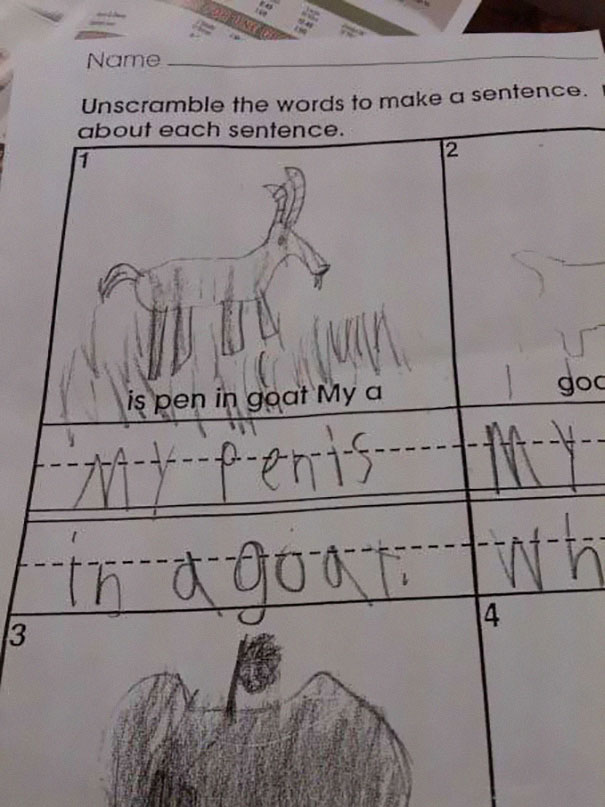 Name
Unscramble the words to make a sentence.
about each sentence.
1
2
is pen in goat My a
My penis
My
in a goat.
Wh
3
4